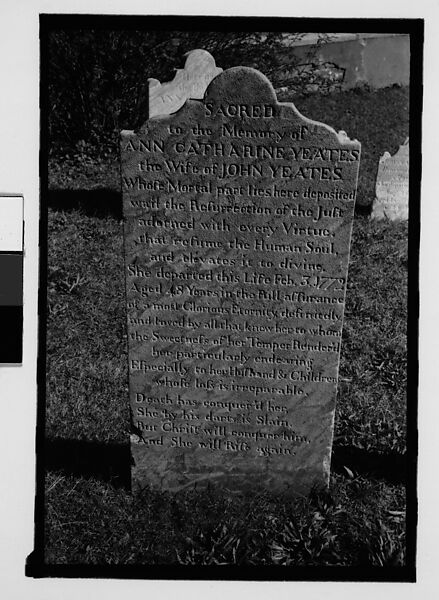 SACRED
to the Memory of
ANN CATHARINE YEATES
the Wife of JOHN YEATES
Whose Mortal part lies here deposited
wait the Resurrection of the Just
adorned with every Virtue,
that refume the Human Soul,
and elevates it to divine.
She departed this Life Feb. 3. 1772
Aged 48 Years in the full assurance
of a most Glorious Eternity,
and loved by all that knew her to whom
the Sweetness of her Temper Render'd
her particularly endearing
Especially to her Husband & Children
whose loss is irreparable.
Death has conquer'd her
She by his darts is Slain
But Christ will conquer him,
And She will Rise again.